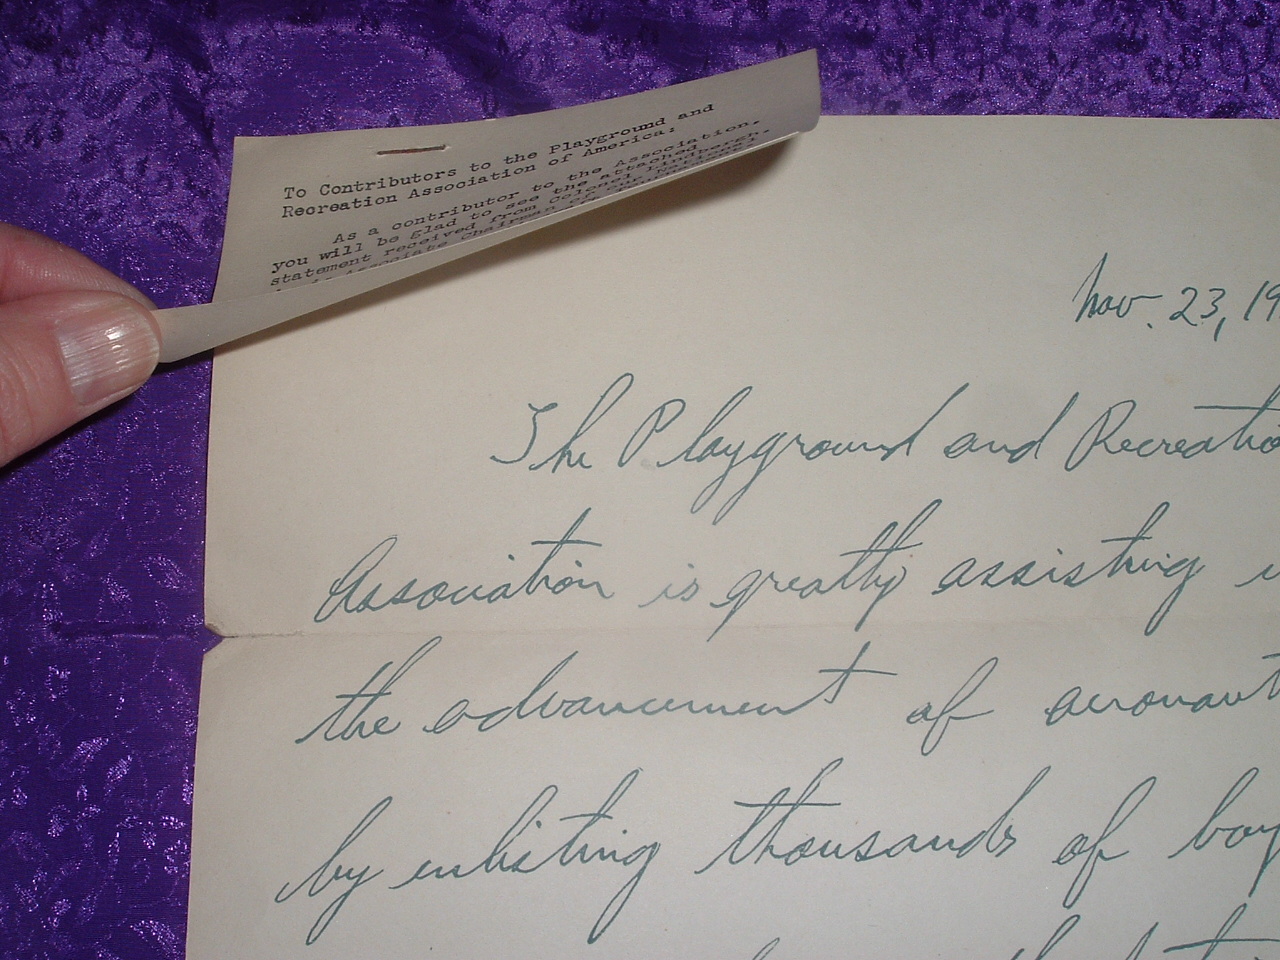 To Contributors to the Playground and
Recreation Association of America:
As a contributor to the Association,
you will be glad to see the attached
statement received from Colonel Lindbergh,
Associate Chairman of our National
Nov. 23, 19
The Playground and Recreatio
Association is greatly assisting
the advancement of aeronaut
by enlisting thousands of boy